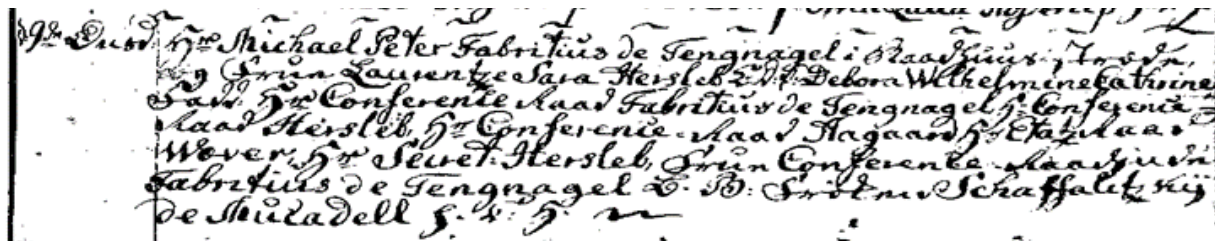 d 9de Hr Michael Peter Fabritius de Tengnagel i Raadhuus-Stræde,
og Frue Laurentze Sara Hersleb Debora Wilhelmine Cathrine
Fadr. Hr Conference Raad Fabritius de Tengnagel, Hr Conference
Raad Hersleb, Hr Conference-Raad Aagaard Hr Etatz Raad
Wøver, Hr Secret: Hersleb, Frue Conference Raadinde
Fabritius de Tengnagel B: Frøken Schaffalitzkij
de Muckadell